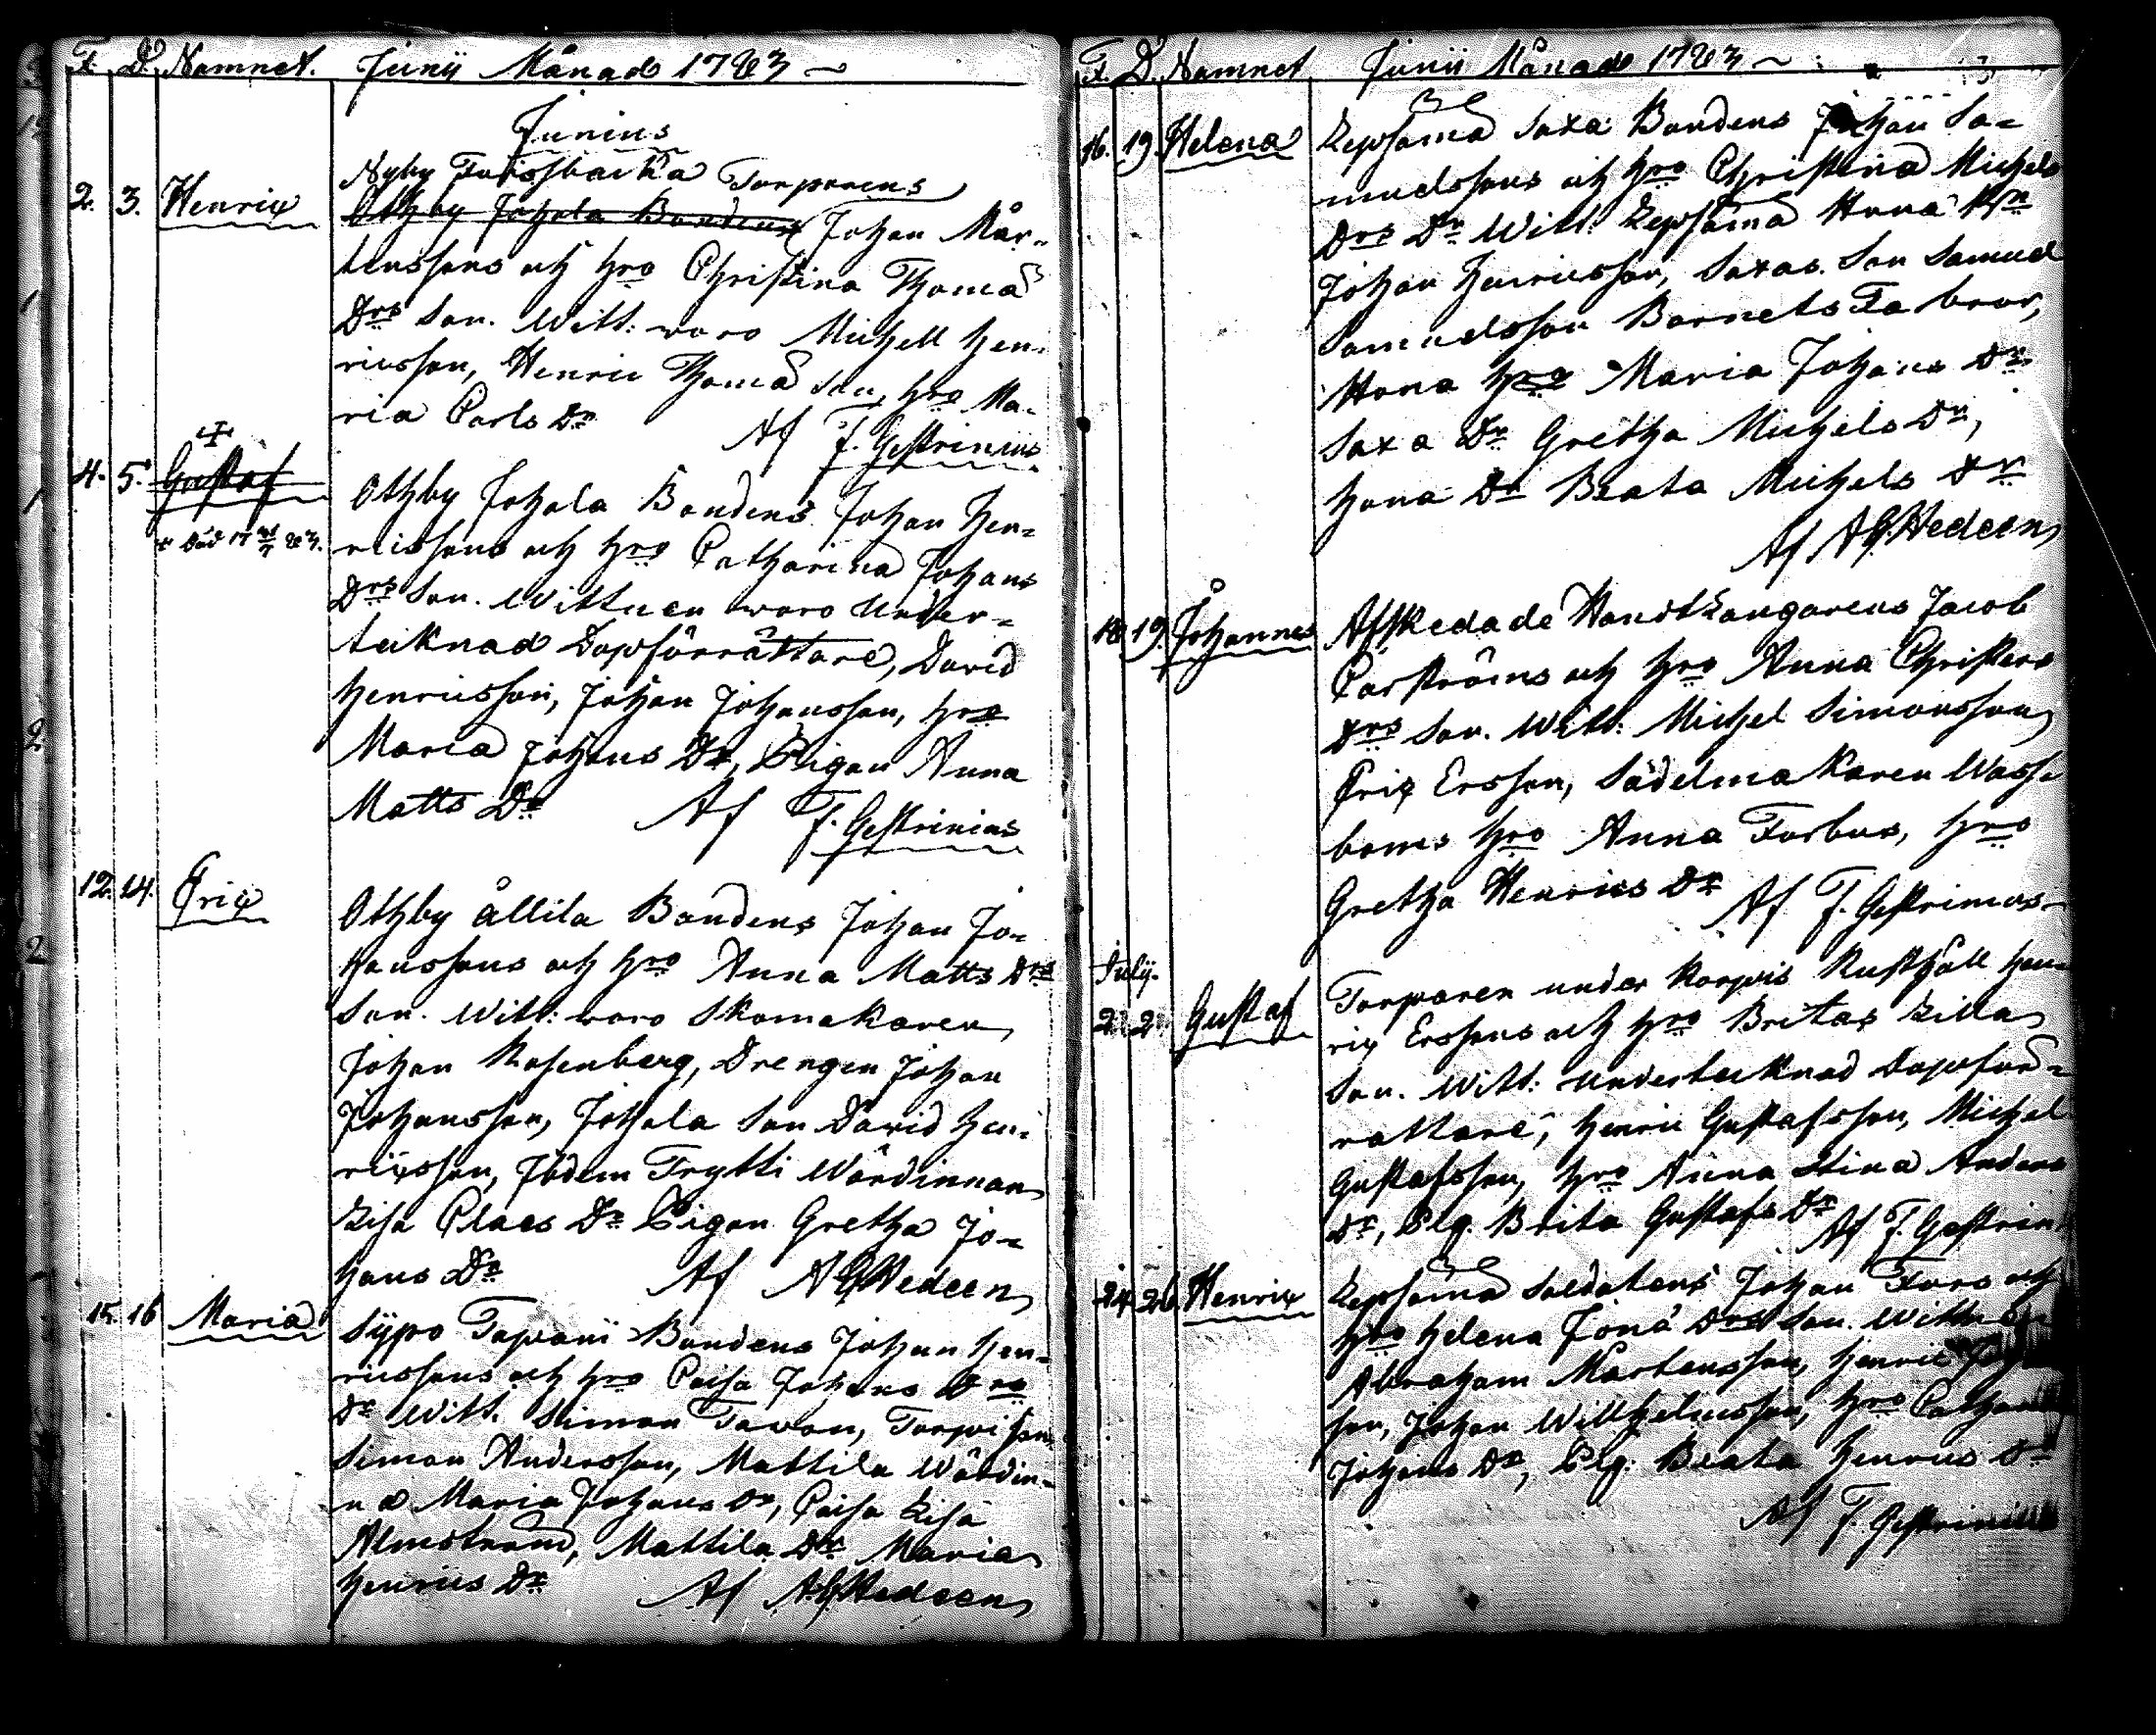 F. D. Namnet. Junii Månad 1783
Junius
2. 3. Henrix Nyby Torparens
Othby Johola Bondens Johan Mår-
tenssons och hro Christina Thomæ
Drs Son. Witt: woro Michell Hen-
ricsson, Henric Thomæ Son, hro Ma-
ria Carls Dr Af F. Gestrinius
4. 5. Gustaf Othby Johola Bondens Johan Hen-
+ död 17 83. ricssons och hro Catharina Johans
Drs Son. Wittnen woro under-
tecknad Dopförrättare, David
Henricsson, Johan Johansson, hro
Maria Johans Dr, Pigan Anna
Matts Dr Af F. Gestrinius
12. 14. Erix Othby Ållila Bondens Johan Jo-
hanssons och hro Anna Matts Drs
Son. Witt: woro Skomakaren
Johan Rosenberg, Drengen Johan
Johansson, Johola Son David Hen-
rixsson, Frytti Wärdinnan
Lisa Claes Dr Pigan Gretha Jo-
hans Dr Af A G Hedeen
15. 16 Maria Sÿpo Tapani Bondens Johan Hen-
ricssons och hro Caisa Johans Drs
Dr Witt. Simon
Simon Andersson, Mattila Wärdin-
na Maria Johans Dr, Caisa Lisa
Almstrand, Mattila Dr Maria
Henrics Dr Af A G Hedeen
F. D. Namnet Junii Månad 1783
16. 19. Helena Lepsämä Saxa Bondens Johan Sa-
muelssons och hro Christina Michels
Drs Dr Witt: Lepsämä
Johan Henricsson, Saxas Son Samuel
Samuelsson Barnets Fa bror,
hro Maria Johans Dr
Saxa Dr Gretha Michels Dr,
Dr Beata Michels Dr
Af A G Hedeen
18 19. Johannes Afskedade Handtlangarens Jacob
Carströms och hro Anna Christers
Drs Son. Witt: Michel Simonsson
Erix Ersson, Sadelmakaren Wass-
boms hro Anna Forbus, hro
Gretha Henrics Dr Af F. Gestrinius
Julii.
Gustaf Torparen under Korpis Rusthåll Hen-
rix Erssons och hro Britas Lilla
Son. Witt: undertecknad Dopför-
rättare, Henric Gustafsson, Michel
Gustafsson, hro Anna Stina Anders
Dr, Pig. Brita Gustafs Dr Af F. Gestrin
24. 26. Henrix Lepsämä Soldatens Johan Fors och
hro Helena Jonæ Drs Son. Wittnen
Abraham Mårtensson, Henric
son, Johan Willhelmsson, hro
Johans Dr, Pig. Beata Henrics Dr
Af F. Gestrinius